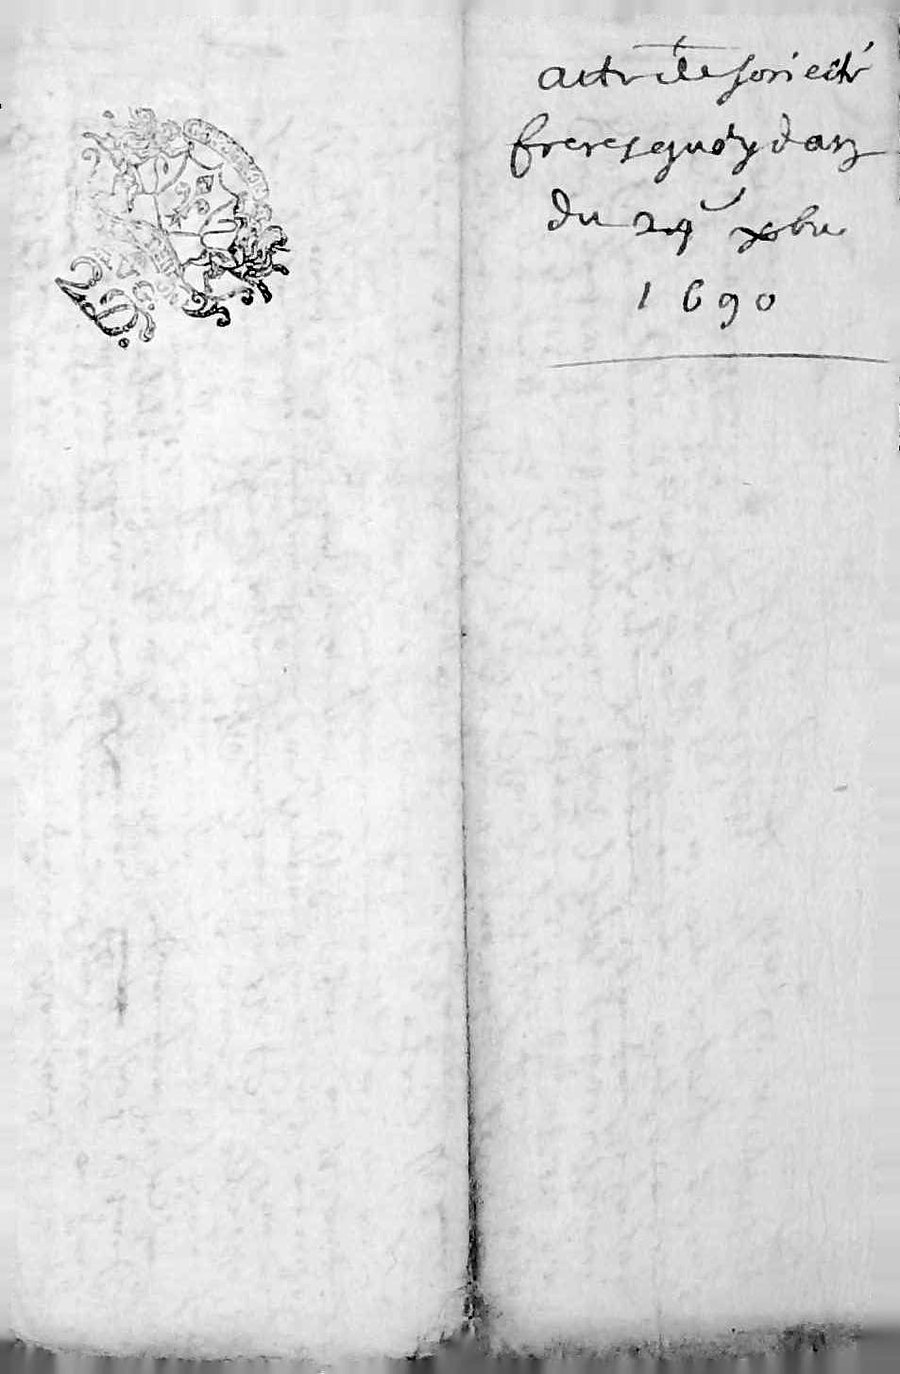 2 D.
acte de societé
freres guoydan
du 29 xbre
1690